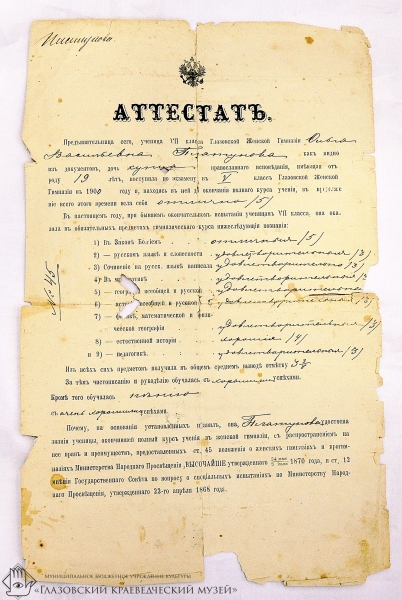 АТТЕСТАТЪ.
Предъявительница сего, ученица VII класса Глазовской Женской Гимназіи
Васильевна Платунова, какъ видно
изъ документовъ, дочь купца православнаго исповѣданія, имѣющая отъ
роду 19 лѣтъ, поступила по экзамену въ V классъ Глазовской Женской
Гимназіи въ 1900 году и, находясь въ ней до окончанія полнаго курса ученія, въ
ніе всего этого времени вела себя отлично (5)
Въ настоящемъ году, при бывшемъ окончательномъ испытаніи ученицъ VII класса, она ока-
зала въ обязательныхъ предметахъ гимназическаго курса нижеслѣдующія познанія:
1) Въ Законѣ Божіемъ отличныя (5)
2) — русскомъ языкѣ и словесности удовлетворительныя (3)
3) Сочиненіе на русск. языкѣ написала удовлетворительно (3)
№ 45
4) Въ удовлетворительныя (3
5) — всеобщей и русской удовлетворительныя
6) всеобщей и русской удовлетворительныя (3)
7) — математической и физи-
ческой географіи удовлетворительныя (3)
8) — естественной исторіи хорошія (4)
и 9) — педагогикѣ удовлетворительныя (3)
Изъ всѣхъ сихъ предметовъ получила въ общемъ среднемъ выводѣ отмѣтку
За тѣмъ чистописанію и рукодѣлію обучалась съ хорошими успѣхами.
Кромѣ того обучалась пѣнію
съ очень хорошими успѣхами.
Почему, на основаніи установленныхъ правилъ, она, Платунова, удостоена
званія ученицы, окончившей полный курсъ ученія въ женской гимназіи, съ распространеніемъ на
нее правъ и преимуществъ, предоставленныхъ ст. 45 положенія о женскихъ гимназіяхъ и прогим-
назіяхъ Министерства Народнаго Просвѣщенія, ВЫСОЧАЙШЕ утвержденнаго 1870 года, и ст. 12
мнѣнія Государственнаго Совѣта по вопросу о спеціальныхъ испытаніяхъ по Министерству Народ-
наго Просвѣщенія, утвержденнаго 22-го апрѣля 1868 года.
МУНИЦИПАЛЬНОЕ БЮДЖЕТНОЕ УЧРЕЖДЕНИЕ КУЛЬТУРЫ
«ГЛАЗОВСКИЙ КРАЕВЕДЧЕСКИЙ МУЗЕЙ»